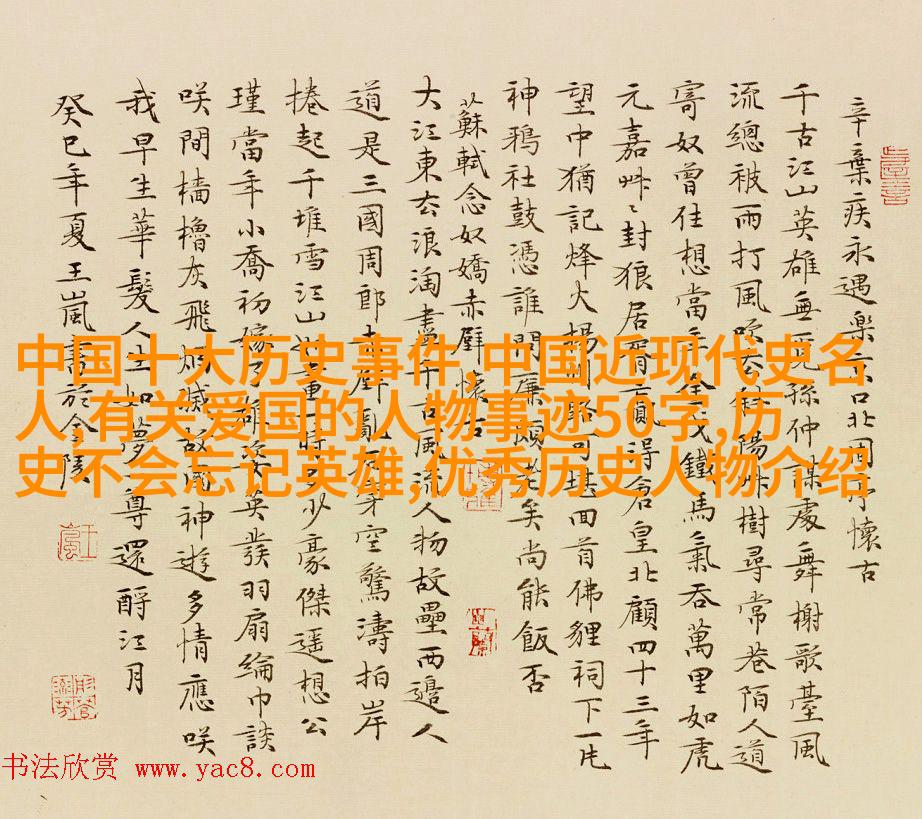 辛棄疾永遇樂京口北固亭懷古
千古江山英雄無覓孫仲謀處舞榭歌臺風
流總被雨打風吹去斜陽艸樹尋常巷陌人道
寄奴曾住想當年金戈鐵馬氣吞萬里如虎
元嘉艸〻封狼居胥贏得倉皇北顧四十三年
望中猶記烽火揚州路可堪回首佛貍祠下一片
神鴉社鼓憑誰問廉頗老矣尚能飯否
蘇軾念奴嬌赤壁懷古
大江東去浪淘盡千古風流人物故壘西邊人
道是三國周郎赤壁亂石穿空驚濤拍岸
捲起千堆雪江山如畫一時多少豪傑遥想公
瑾當年小喬初嫁了雄姿英發羽扇綸巾談
咲間檣櫓灰飛煙滅故國神遊多情應咲
我早生華髮人生如夢一尊還酹江月
癸巳年夏王嵐書於金陵
中国十大历史事件,中国近现代史名
人,有关爱国的人物事迹50字,历
史不会忘记英雄,优秀历史人物介绍
书法欣赏 www.yac8.com